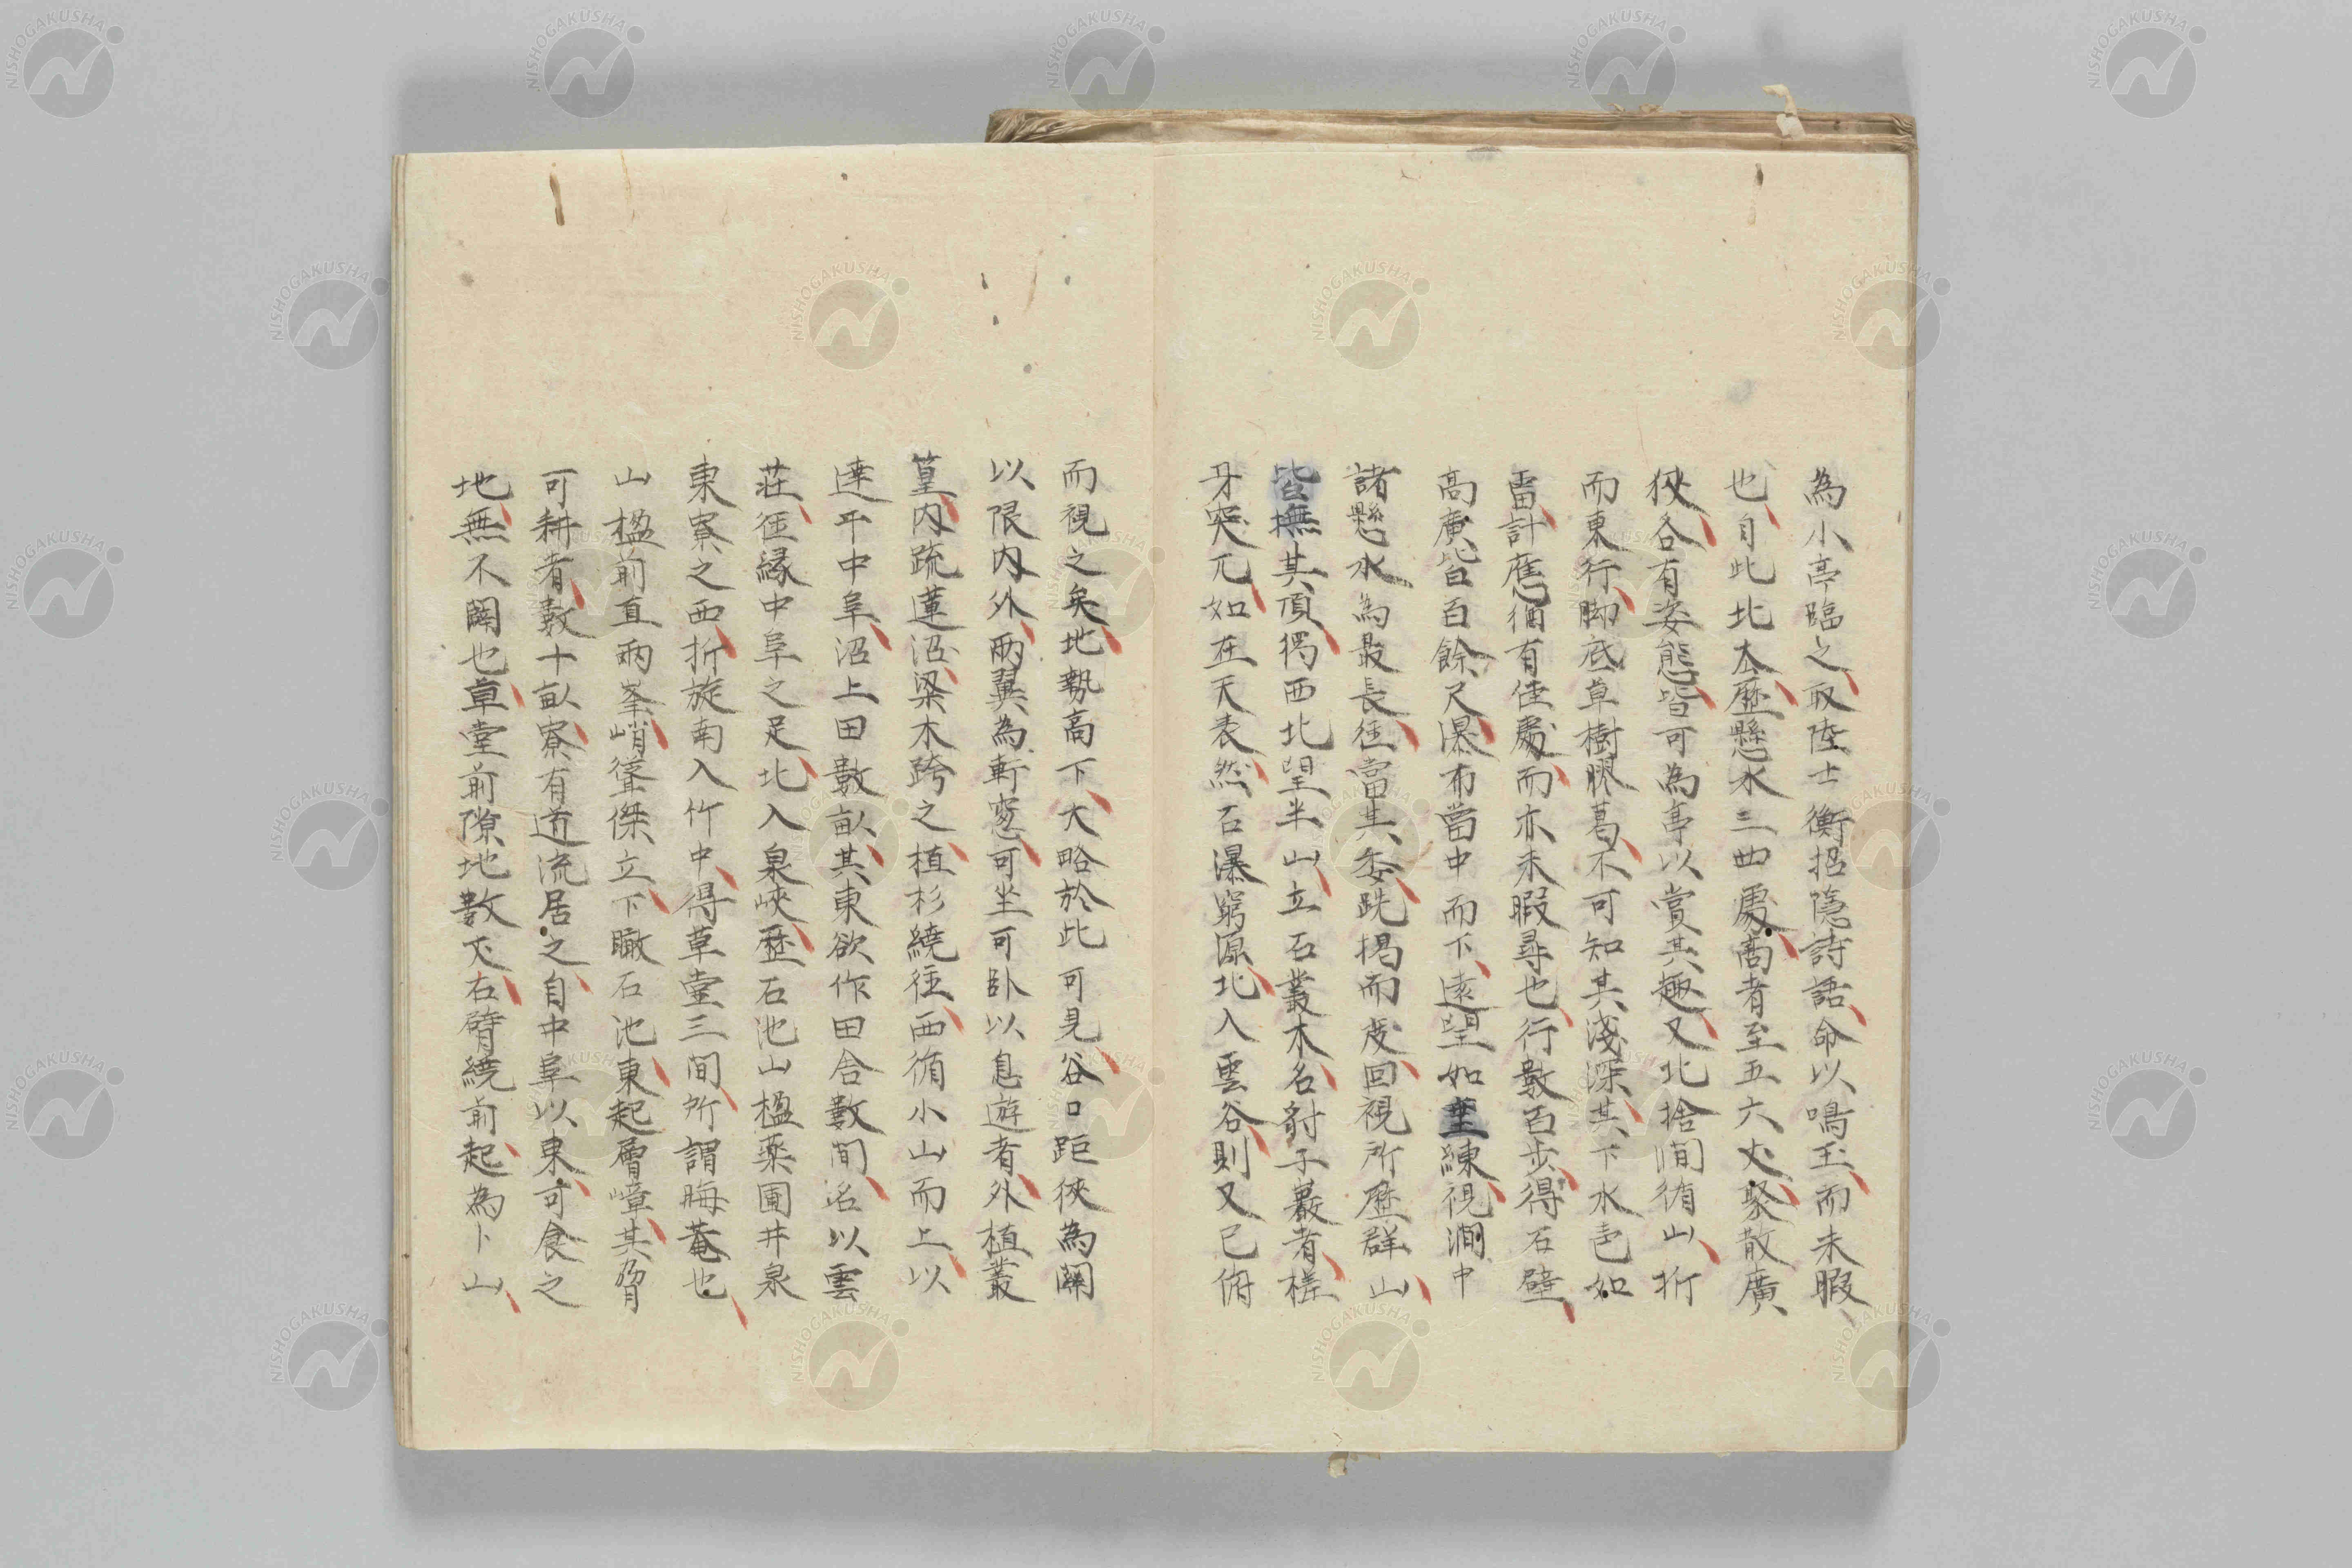 為小亭臨之取陸士衡招隱詩語命以鳴玉而未暇
也自此北去歷懸水三四處高者至五六丈聚散廣
狹各有姿態皆可為亭以賞其趣又北捨澗循山折
而東行脚底草樹膠葛不可知其淺深其下水聲如
雷計應猶有佳處而亦未暇尋也行數百步得石壁
高廣皆百餘尺瀑布當中而下遠望如垂練視澗中
諸懸水為最長徑當其委跣揭而度回視所歷群山
皆撫其頂獨西北望半山立石叢木名豺子巖者槎
牙突兀如在天表然石瀑窮源北入雲谷則又已俯
而視之矣地勢高下大略於此可見谷口距狹為關
以限内外兩翼為軒窓可坐可卧以息遊者外植叢
篁内疏蓮沼梁木跨之植杉繞徑西循小山而上以
達于中阜沼上田數畝其東欲作田舍數間名以雲
莊徑緣中阜之足北入泉峽歷石池山楹藥圃井泉
東寮之西折旋南入竹中得草堂三間所謂晦菴也
山楹前直兩峯峭聳傑立下瞰石池東起層嶂其脅
可耕者數十畝寮有道流居之自中阜以東可食之
地無不闢也草堂前隙地數丈右臂繞前起為卜山